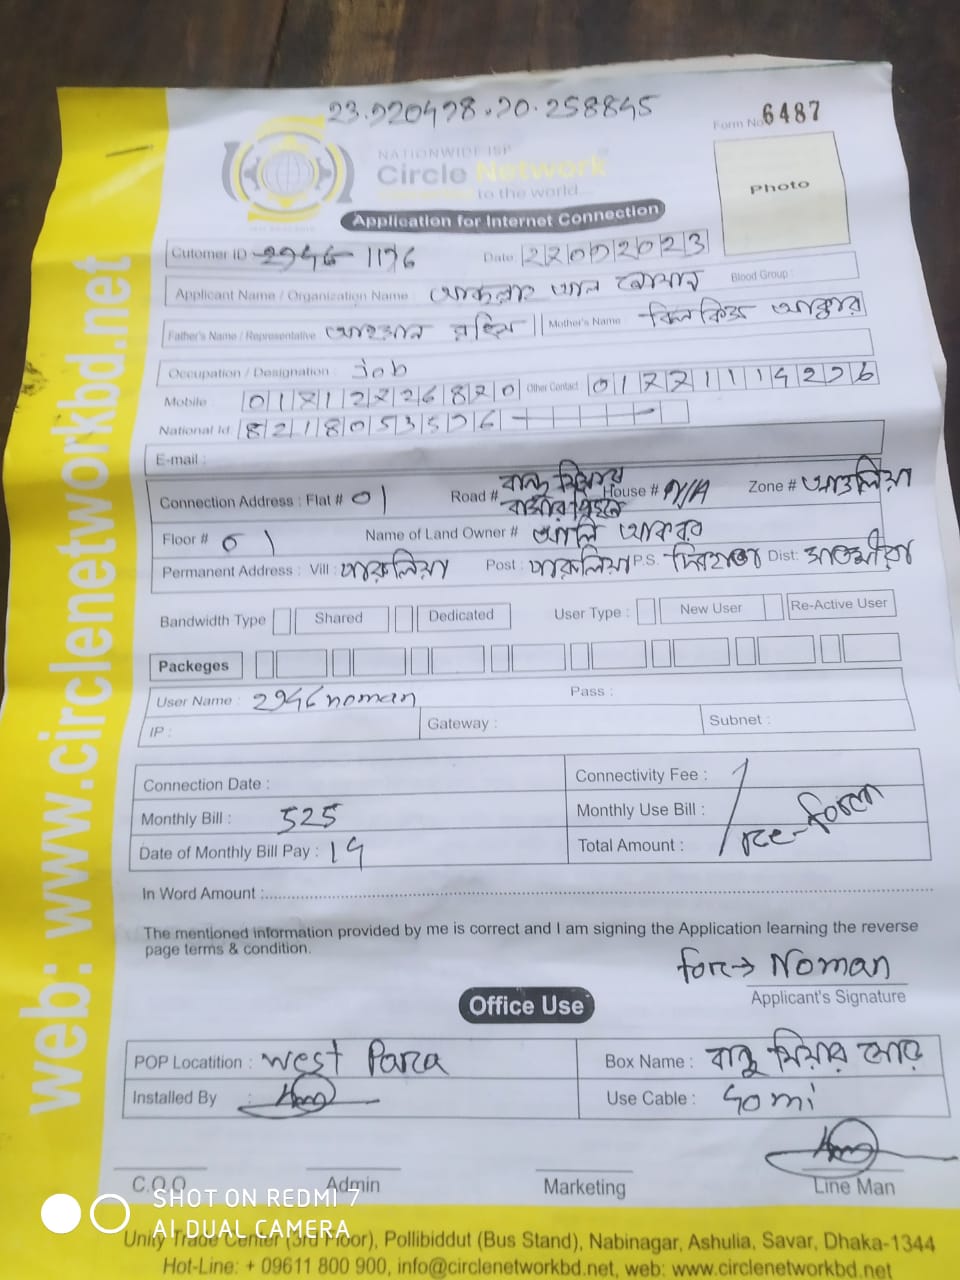 Form No 6487
NATIONWIDE ISP
Circle Network
to the world...
Application for Internet Connection
Photo
Cutomer ID 2946 1176
Date 22072023
Applicant Name / Organization Name : আল
Blood Group :
Father's Name / Representative আহসান রহিম Mother's Name বিলকিস আক্তার
Occupation / Designation : Job
Mobile Other Contact
National Id
E-mail :
Connection Address : Flat # 01 Road # বাচ্চু মিয়ার House # N/A Zone # আউলিয়া
Floor # 01 Name of Land Owner # আলি আকবর
Permanent Address : Vill : পারুলিয়া Post : পারুলিয়া P.S. দেবহাটা Dist: সাতক্ষীরা
Bandwidth Type Shared Dedicated User Type : New User Re-Active User
Packeges
User Name : 2946noman Pass :
IP : Gateway : Subnet :
Connection Date : Connectivity Fee :
Monthly Bill : 525 Monthly Use Bill :
Date of Monthly Bill Pay : 19 Total Amount : re-form
In Word Amount :
The mentioned information provided by me is correct and I am signing the Application learning the reverse
page terms & condition.
for→ Noman
Applicant's Signature
Office Use
POP Locatition : West Para Box Name : বাচ্চু মিয়ার
Installed By : Use Cable : 40 mi
C.O.O Admin Marketing Line Man
Unity Trade Center (3rd Floor), Pollibiddut (Bus Stand), Nabinagar, Ashulia, Savar, Dhaka-1344
Hot-Line: + 09611 800 900, info@circlenetworkbd.net, web: www.circlenetworkbd.net
web: www.circlenetworkbd.net
SHOT ON REDMI 7
AI DUAL CAMERA